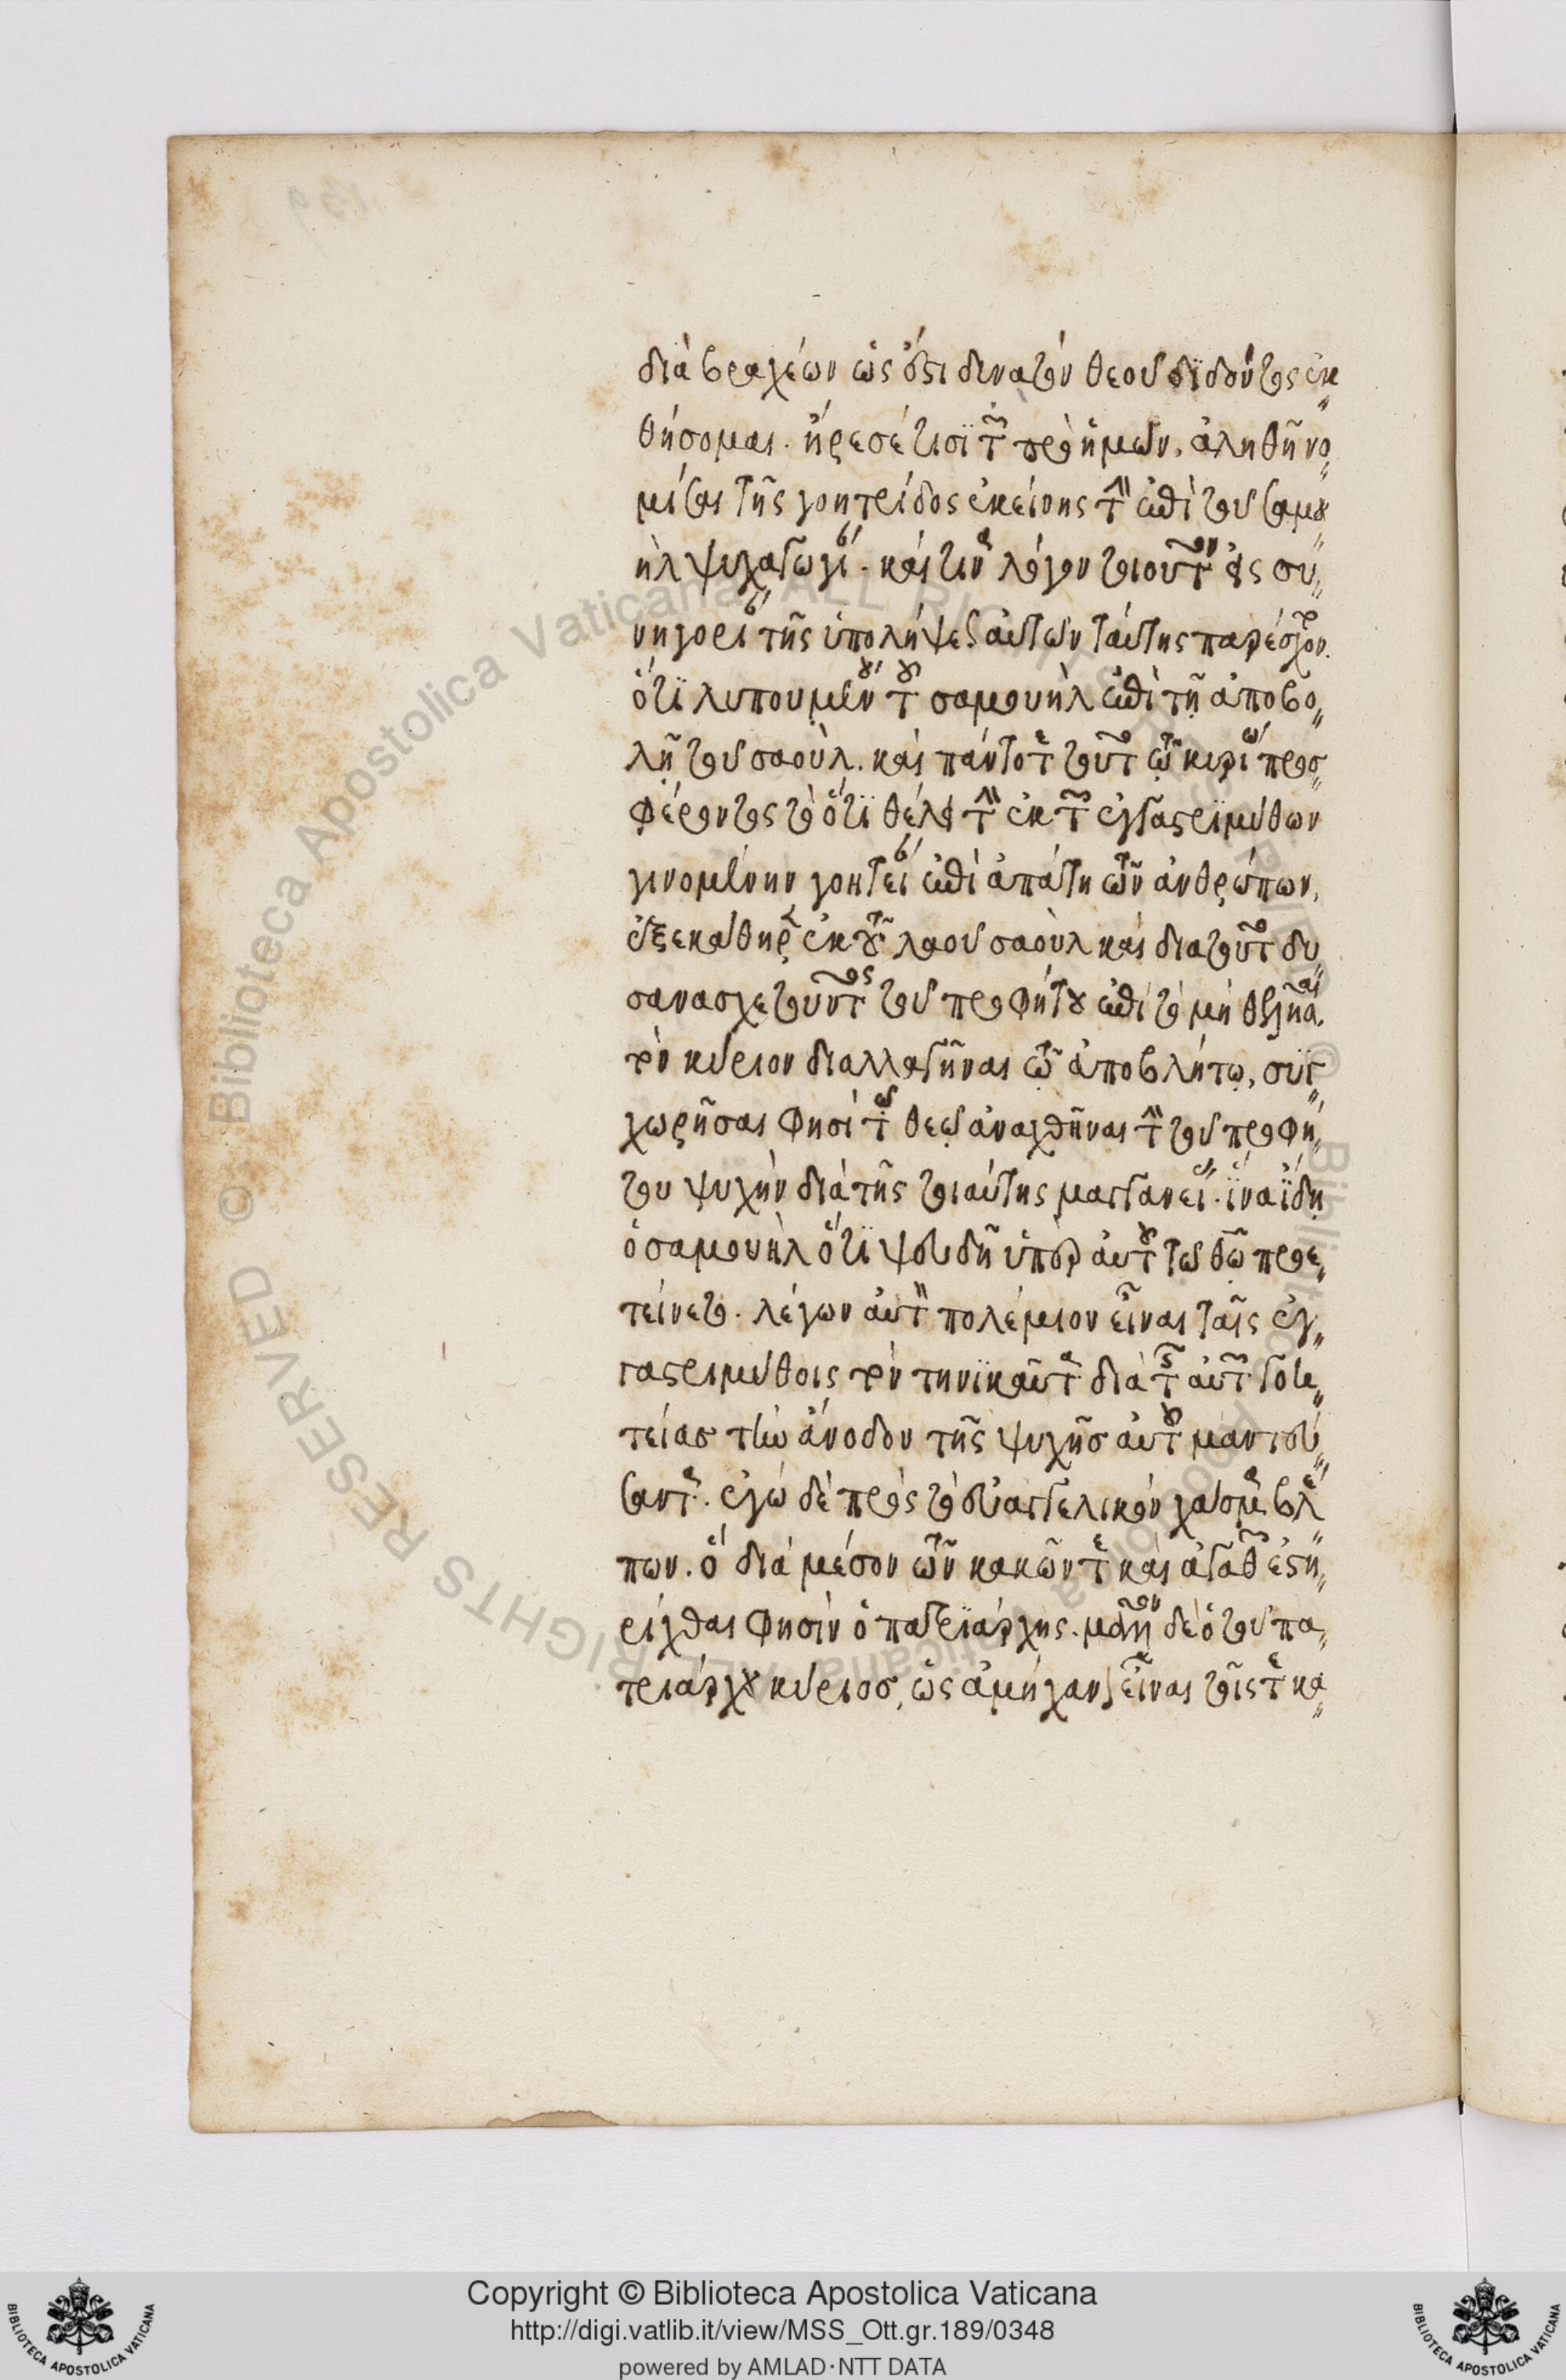 διὰ βραχέων ὡς ἐστι δυνατὸν θεοῦ διδόντος ἐκ
θήσομαι. ἤρεσέ τισϊ τῶν πρὸ ἡμῶν, ἀληθῆ νο
μίσαι τῆς γοητρίδος ἐκείνης τὴν ἐπὶ τοῦ σαμου
ὴλ ψυχαγωγίαν. καί τινα λόγον τοιοῦτον εἰς συ
νηγορίαν τῆς ὑπολήψεως αὐτῶν ταύτης παρέσχον.
ὅτϊ λυπουμένου τοῦ σαμουὴλ ἐπὶ τῇ ἀποβο
λῇ τοῦ σαοὺλ. καὶ πάντοτε τοῦτο τῷ κυρίῳ προσ
φέροντος τὸ ὅτϊ θέλει τὴν ἐκ τῶν ἐγγαστριμύθων
γινομένην γοητείαν ἐπὶ ἀπάτῃ τῶν ἀνθρώπων,
ἐξεκάθηρεν ἐκ τοῦ λαοῦ σαοὺλ καὶ διατοῦτο δυ
σανασχετοῦντος τοῦ προφήτου ἐπὶ τὸ μὴ θελῆσαι
τὸν κύριον διαλλαγῆναι τῷ ἀποβλήτῳ, συγ
χωρῆσαι φησὶ τὸν θεὸν ἀναχθῆναι τὴν τοῦ προφή
του ψυχὴν διὰ τῆς τοιαύτης μαγγανείας. ἵνα ἴδῃ
ὁ σαμουὴλ ὅτϊ ψευδῆ ὑπὲρ αὐτοῦ τῷ θεῷ προε
τείνετο. λέγων αὐτὸν πολέμιον εἶναι ταῖς ἐγ
γαστριμύθοις τὸν τηνϊκαῦτα διὰ τῆς αὐτῶν γοη
τείας τὴν ἄνοδον τῆς ψυχῆσ αὐτοῦ μαντευ
σαντα. ἐγὼ δὲ πρὸς τὸ εὐαγγελικὸν χάσμα βλέ
πων. ὃ διὰ μέσον τῶν κακῶν τε καὶ ἀγαθῶν ἐστη
ρίχθαι φησὶν ὁ πατρϊάρχης. μᾶλλον δὲ ὁ τοῦ πα
τριάρχου κύριοσ, ὡς ἀμήχανον εἶναι τοῖς τε κα
Copyright © Biblioteca Apostolica Vaticana
http://digi.vatlib.it/view/MSS_Ott.gr.189/0348
powered by AMLAD·NTT DATA